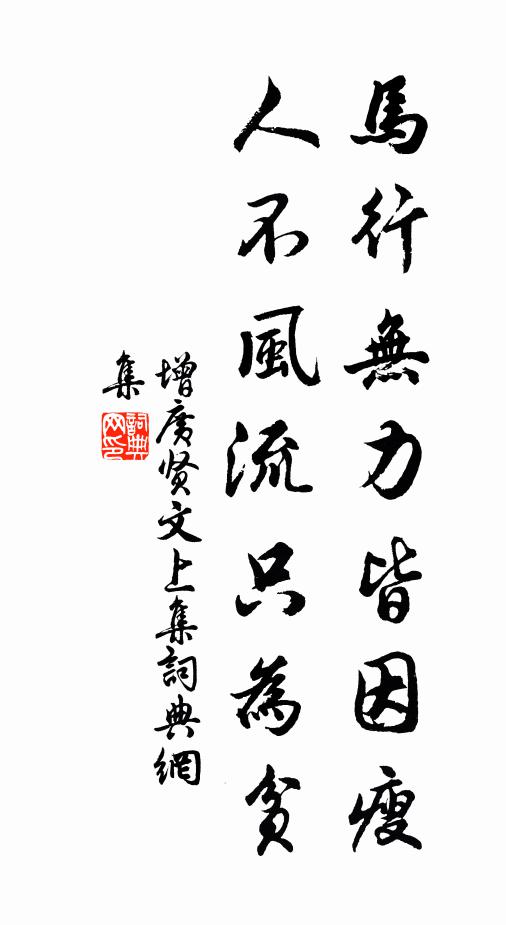 馬行無力皆因瘦
人不風流只為貧
增廣贤文上集詞典網
集
詞典
网印